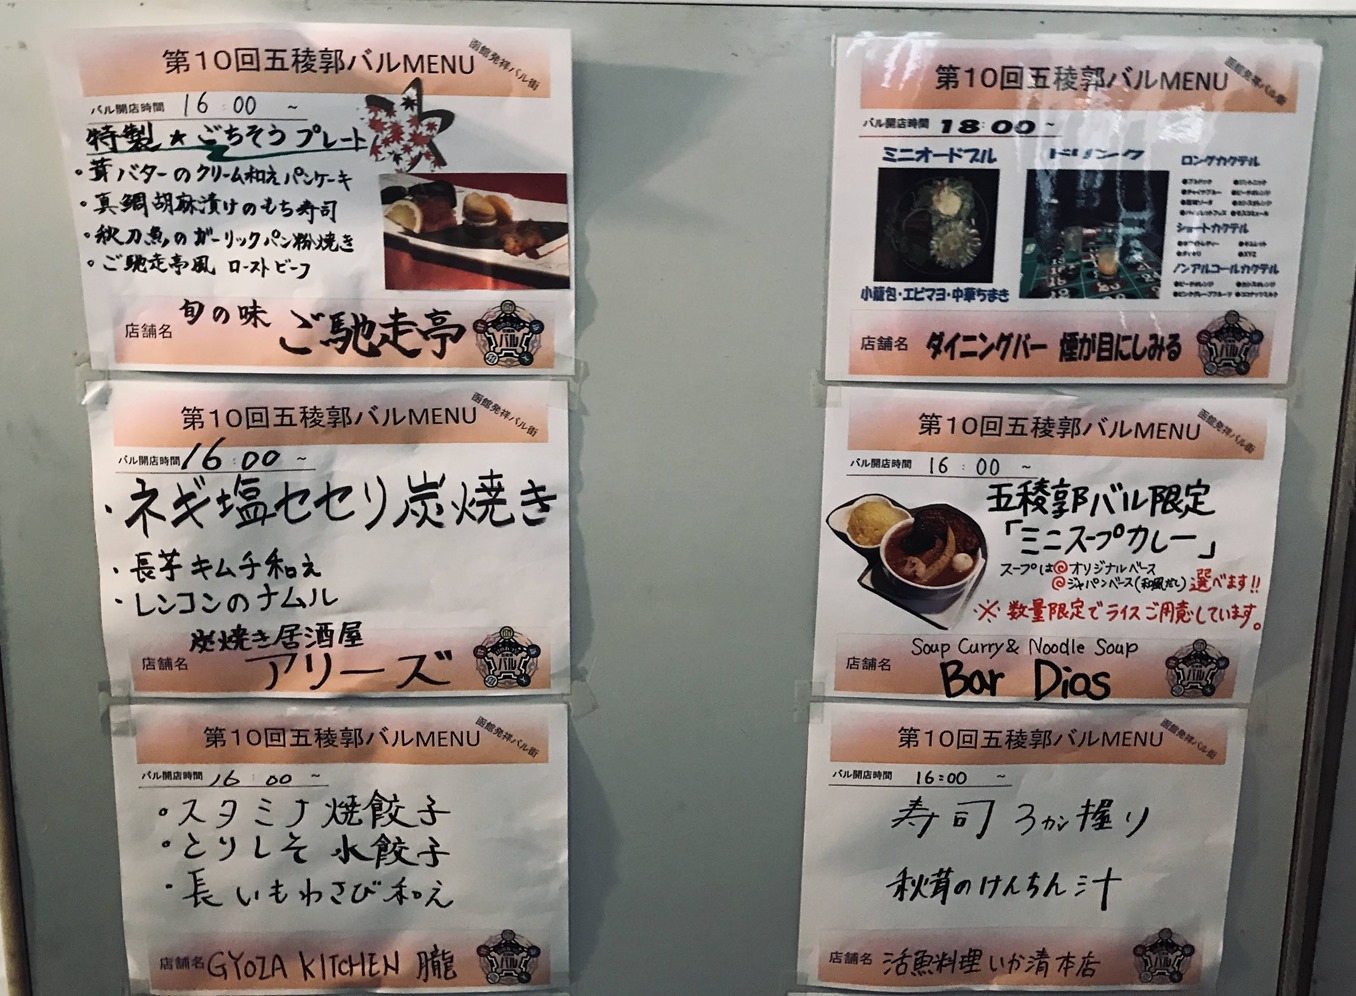 第10回五稜郭バルMENU
函館発祥バル街
バル開店時間 16:00 ~
特製★ごちそうプレート
・茸バターのクリーム和えパンケーキ
・真鯛胡麻漬けのもち寿司
・秋刀魚のガーリックパン粉焼き
・ご馳走亭風 ローストビーフ
店舗名 旬の味 ご馳走亭
第10回五稜郭バルMENU
函館発祥バル街
バル開店時間 16:00 ~
・ネギ塩セセリ炭焼き
・長芋キムチ和え
・レンコンのナムル
炭焼き居酒屋
店舗名 アリーズ
第10回五稜郭バルMENU
函館発祥バル街
バル開店時間 16:00 ~
・スタミナ焼餃子
・とりしそ水餃子
・長いもわさび和え
店舗名 GYOZA KITCHEN 朧
第10回五稜郭バルMENU
函館発祥バル街
バル開店時間 18:00 ~
ミニオードブル
ドリンク
小籠包・エビマヨ・中華ちまき
ロングカクテル
ショートカクテル
●XYZ
ノンアルコールカクテル
店舗名 ダイニングバー 煙が目にしみる
第10回五稜郭バルMENU
函館発祥バル街
バル開店時間 16:00 ~
五稜郭バル限定
「ミニスープカレー」
スープは@オリジナルベース
@ジャパンベース(和風だし)選べます!!
※数量限定でライスご用意しています。
Soup Curry & Noodle Soup
店舗名 Bar Dios
第10回五稜郭バルMENU
函館発祥バル街
バル開店時間 16:00 ~
寿司3カン握り
秋茸のけんちん汁
店舗名 活魚料理いか清本店